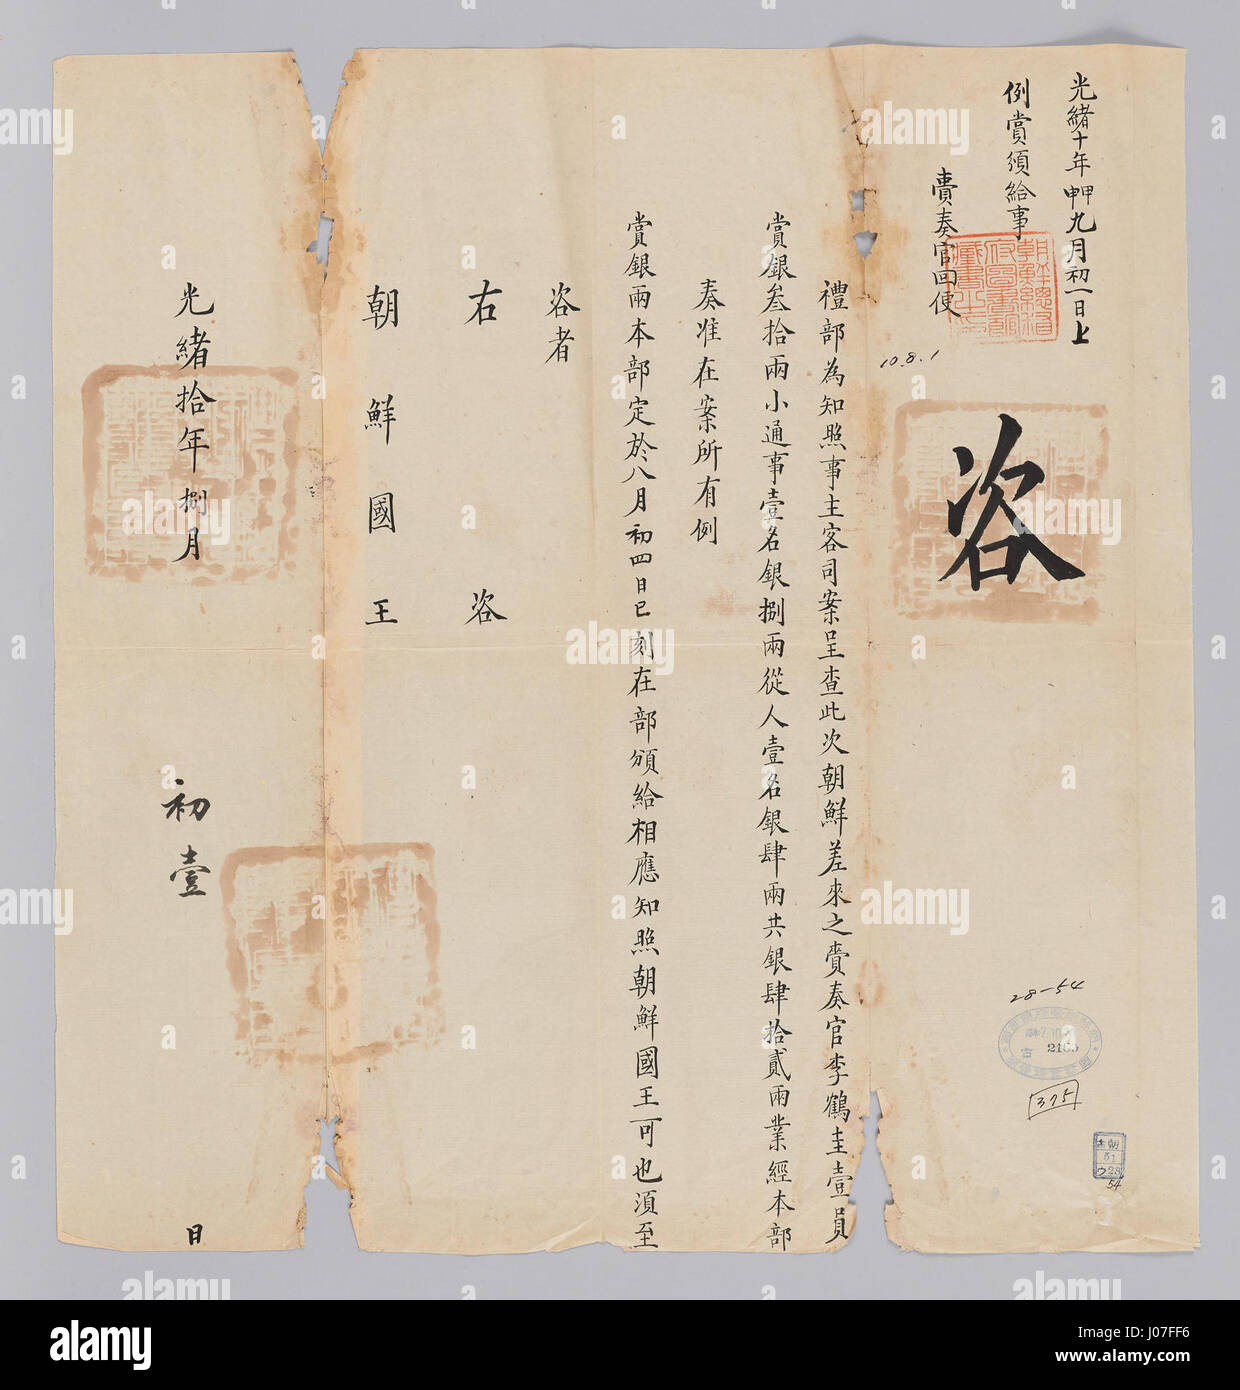 光緒十年甲申九月初一日上
例賞頒給事
賫奏官回便
朝鮮總督
府圖書館
藏書之印
10.8.1
咨
28-54
古
2105
375
朝
51
ウ23
54
禮部為知照事主客司案呈查此次朝鮮差來之賫奏官李鶴圭壹員
賞銀叁拾兩小通事壹名銀捌兩從人壹名銀肆兩共銀肆拾貳兩業經本部
奏准在案所有例
賞銀兩本部定於八月初四日巳刻在部頒給相應知照朝鮮國王可也須至
咨者
右咨
朝鮮國王
光緒拾年捌月初壹日
alamy
a
alamy
Image ID: J07FF6
www.alamy.com